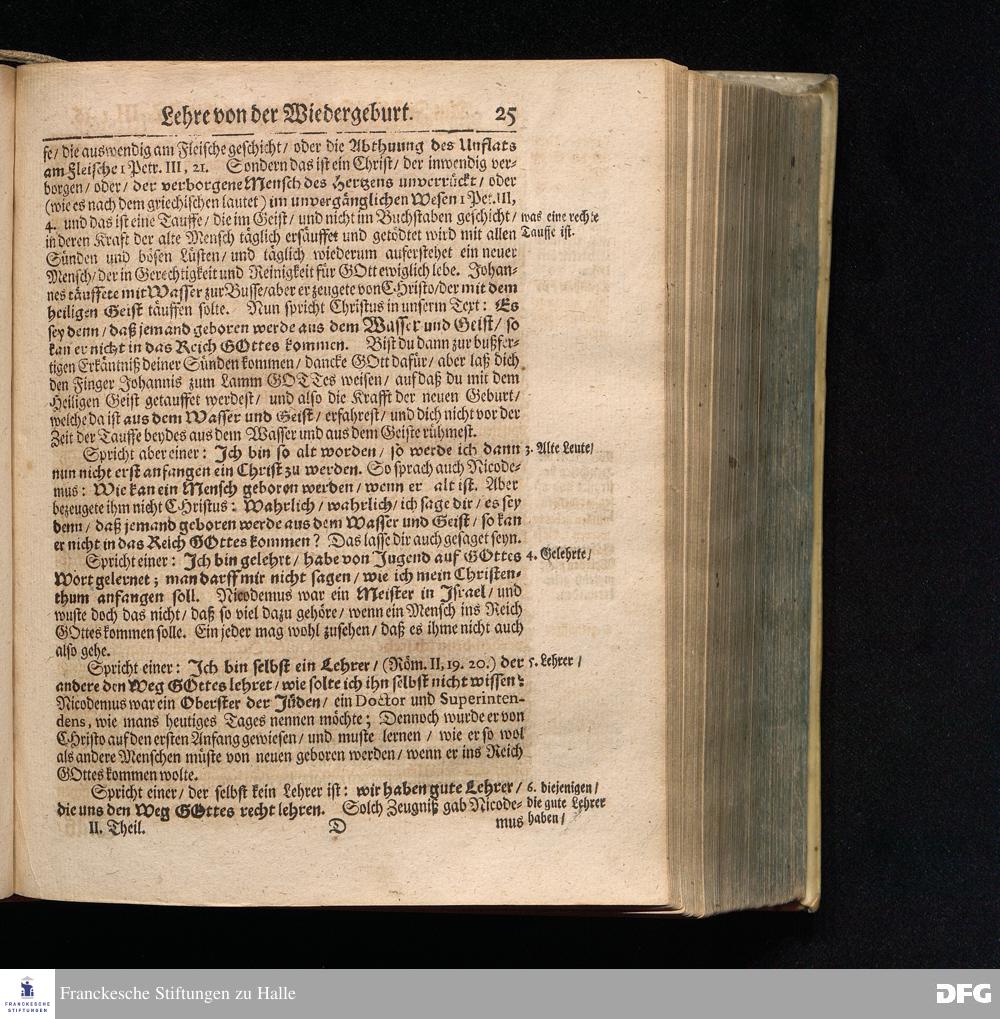 Lehre von der Wiedergeburt. 25
se/ die auswendig am Fleische geschicht/ oder die Abthuung des Unflats
am Fleische 1 Petr. III, 21. Sondern das ist ein Christ/ der inwendig ver-
borgen/ oder/ der verborgene Mensch des Hertzens unverrückt/ oder
(wie es nach dem griechischen lautet) im unvergänglichen Wesen 1 Pet. III,
4. und das ist eine Tauffe/ die im Geist/ und nicht im Buchstaben geschicht/
was eine rechte
Tauffe ist.
in deren Kraft der alte Mensch täglich ersäuffet und getödtet wird mit allen
Sünden und bösen Lüsten/ und täglich wiederum auferstehet ein neuer
Mensch/ der in Gerechtigkeit und Reinigkeit für GOtt ewiglich lebe. Johan-
nes täuffete mit Wasser zur Busse/ aber er zeugete von CHristo/ der mit dem
heiligen Geist täuffen solte. Nun spricht Christus in unserm Text: Es
sey denn/ daß jemand geboren werde aus dem Wasser und Geist/ so
kan er nicht in das Reich GOttes kommen. Bist du dann zur bußfer-
tigen Erkäntniß deiner Sünden kommen/ dancke GOtt dafür/ aber laß dich
den Finger Johannis zum Lamm GOTTes weisen/ auf daß du mit dem
Heiligen Geist getauffet werdest/ und also die Krafft der neuen Geburt/
welche da ist aus dem Wasser und Geist/ erfahrest/ und dich nicht vor der
Zeit der Tauffe beydes aus dem Wasser und aus dem Geiste rühmest.
Spricht aber einer: Ich bin so alt worden/ so werde ich dann
3. Alte Leute/
nun nicht erst anfangen ein Christ zu werden. So sprach auch Nicode-
mus: Wie kan ein Mensch geboren werden/ wenn er alt ist. Aber
bezeugete ihm nicht CHristus: Wahrlich/ wahrlich/ ich sage dir/ es sey
denn/ daß jemand geboren werde aus dem Wasser und Geist/ so kan
er nicht in das Reich GOttes kommen? Das lasse dir auch gesaget seyn.
Spricht einer: Ich bin gelehrt/ habe von Jugend auf GOttes
4. Gelehrte/
Wort gelernet; man darff mir nicht sagen/ wie ich mein Christen-
thum anfangen soll. Nicodemus war ein Meister in Israel/ und
wuste doch das nicht/ daß so viel dazu gehöre/ wenn ein Mensch ins Reich
GOttes kommen solle. Ein jeder mag wohl zusehen/ daß es ihme nicht auch
also gehe.
Spricht einer: Ich bin selbst ein Lehrer/ (Röm. II, 19. 20.) der
5. Lehrer/
andere den Weg GOttes lehret/ wie solte ich ihn selbst nicht wissen:
Nicodemus war ein Oberster der Jüden/ ein Doctor und Superinten-
dens, wie mans heutiges Tages nennen möchte; Dennoch wurde er von
CHristo auf den ersten Anfang gewiesen/ und muste lernen/ wie er so wol
als andere Menschen müste von neuen geboren werden/ wenn er ins Reich
GOttes kommen wolte.
Spricht einer/ der selbst kein Lehrer ist: wir haben gute Lehrer/
6. diejenigen/
die gute Lehrer
haben/
die uns den Weg GOttes recht lehren. Solch Zeugniß gab Nicode-
II. Theil. D mus
FRANCKESCHE
STIFTUNGEN
Franckesche Stiftungen zu Halle
DFG